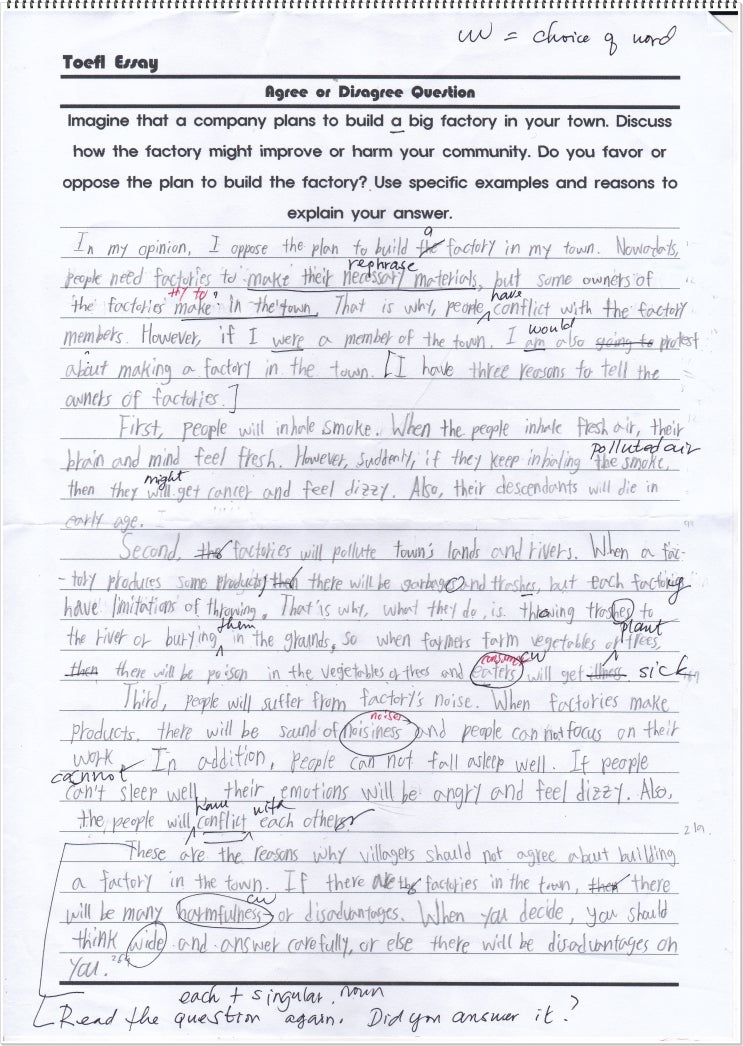 cw = choice of word
Toefl Essay
Agree or Disagree Question
Imagine that a company plans to build a big factory in your town. Discuss
how the factory might improve or harm your community. Do you favor or
oppose the plan to build the factory? Use specific examples and reasons to
explain your answer.
a
In my opinion, I oppose the plan to build the factory in my town. Nowadats,
rephrase
people need factories to make their necessary materials, but some owners of
try to have
the factories make in the town. That is why, people conflict with the factory
would
members. However, if I were a member of the town, I am also going to protest
about making a factory in the town. [I have three reasons to tell the
owners of factories.]
First, people will inhale smoke. When the people inhale fresh air, their
polluted air
brain and mind feel fresh. However, suddenly, if they keep inhaling the smoke,
might
then they will get cancer and feel dizzy. Also, their descendants will die in
early age.
Second, the factories will pollute town's lands and rivers. When a fac-
-tory produces some products, then there will be garbage and trashes, but each factory
have limitations of throwing. That is why, what they do, is throwing trashes to
them plant
the river or burying in the grounds. So when farmers farm vegetables or trees,
consumers cw
then there will be poison in the vegetables or trees and eaters will get illness sick
Third, people will suffer from factory's noise. When factories make
noises
products, there will be sound of noisiness and people can not focus on their
work. In addition, people can not fall asleep well. If people
cannot
can't sleep well, their emotions will be angry and feel dizzy. Also,
have with
the people will conflict each others
219.
These are the reasons why villagers should not agree about building
a factory in the town. If there are the factories in the town, then there
cw
will be many harmfulness or disadvantages. When you decide, you should
think wide and answer carefully, or else there will be disadvantages on
you.
each + singular noun
Read the question again. Did you answer it?